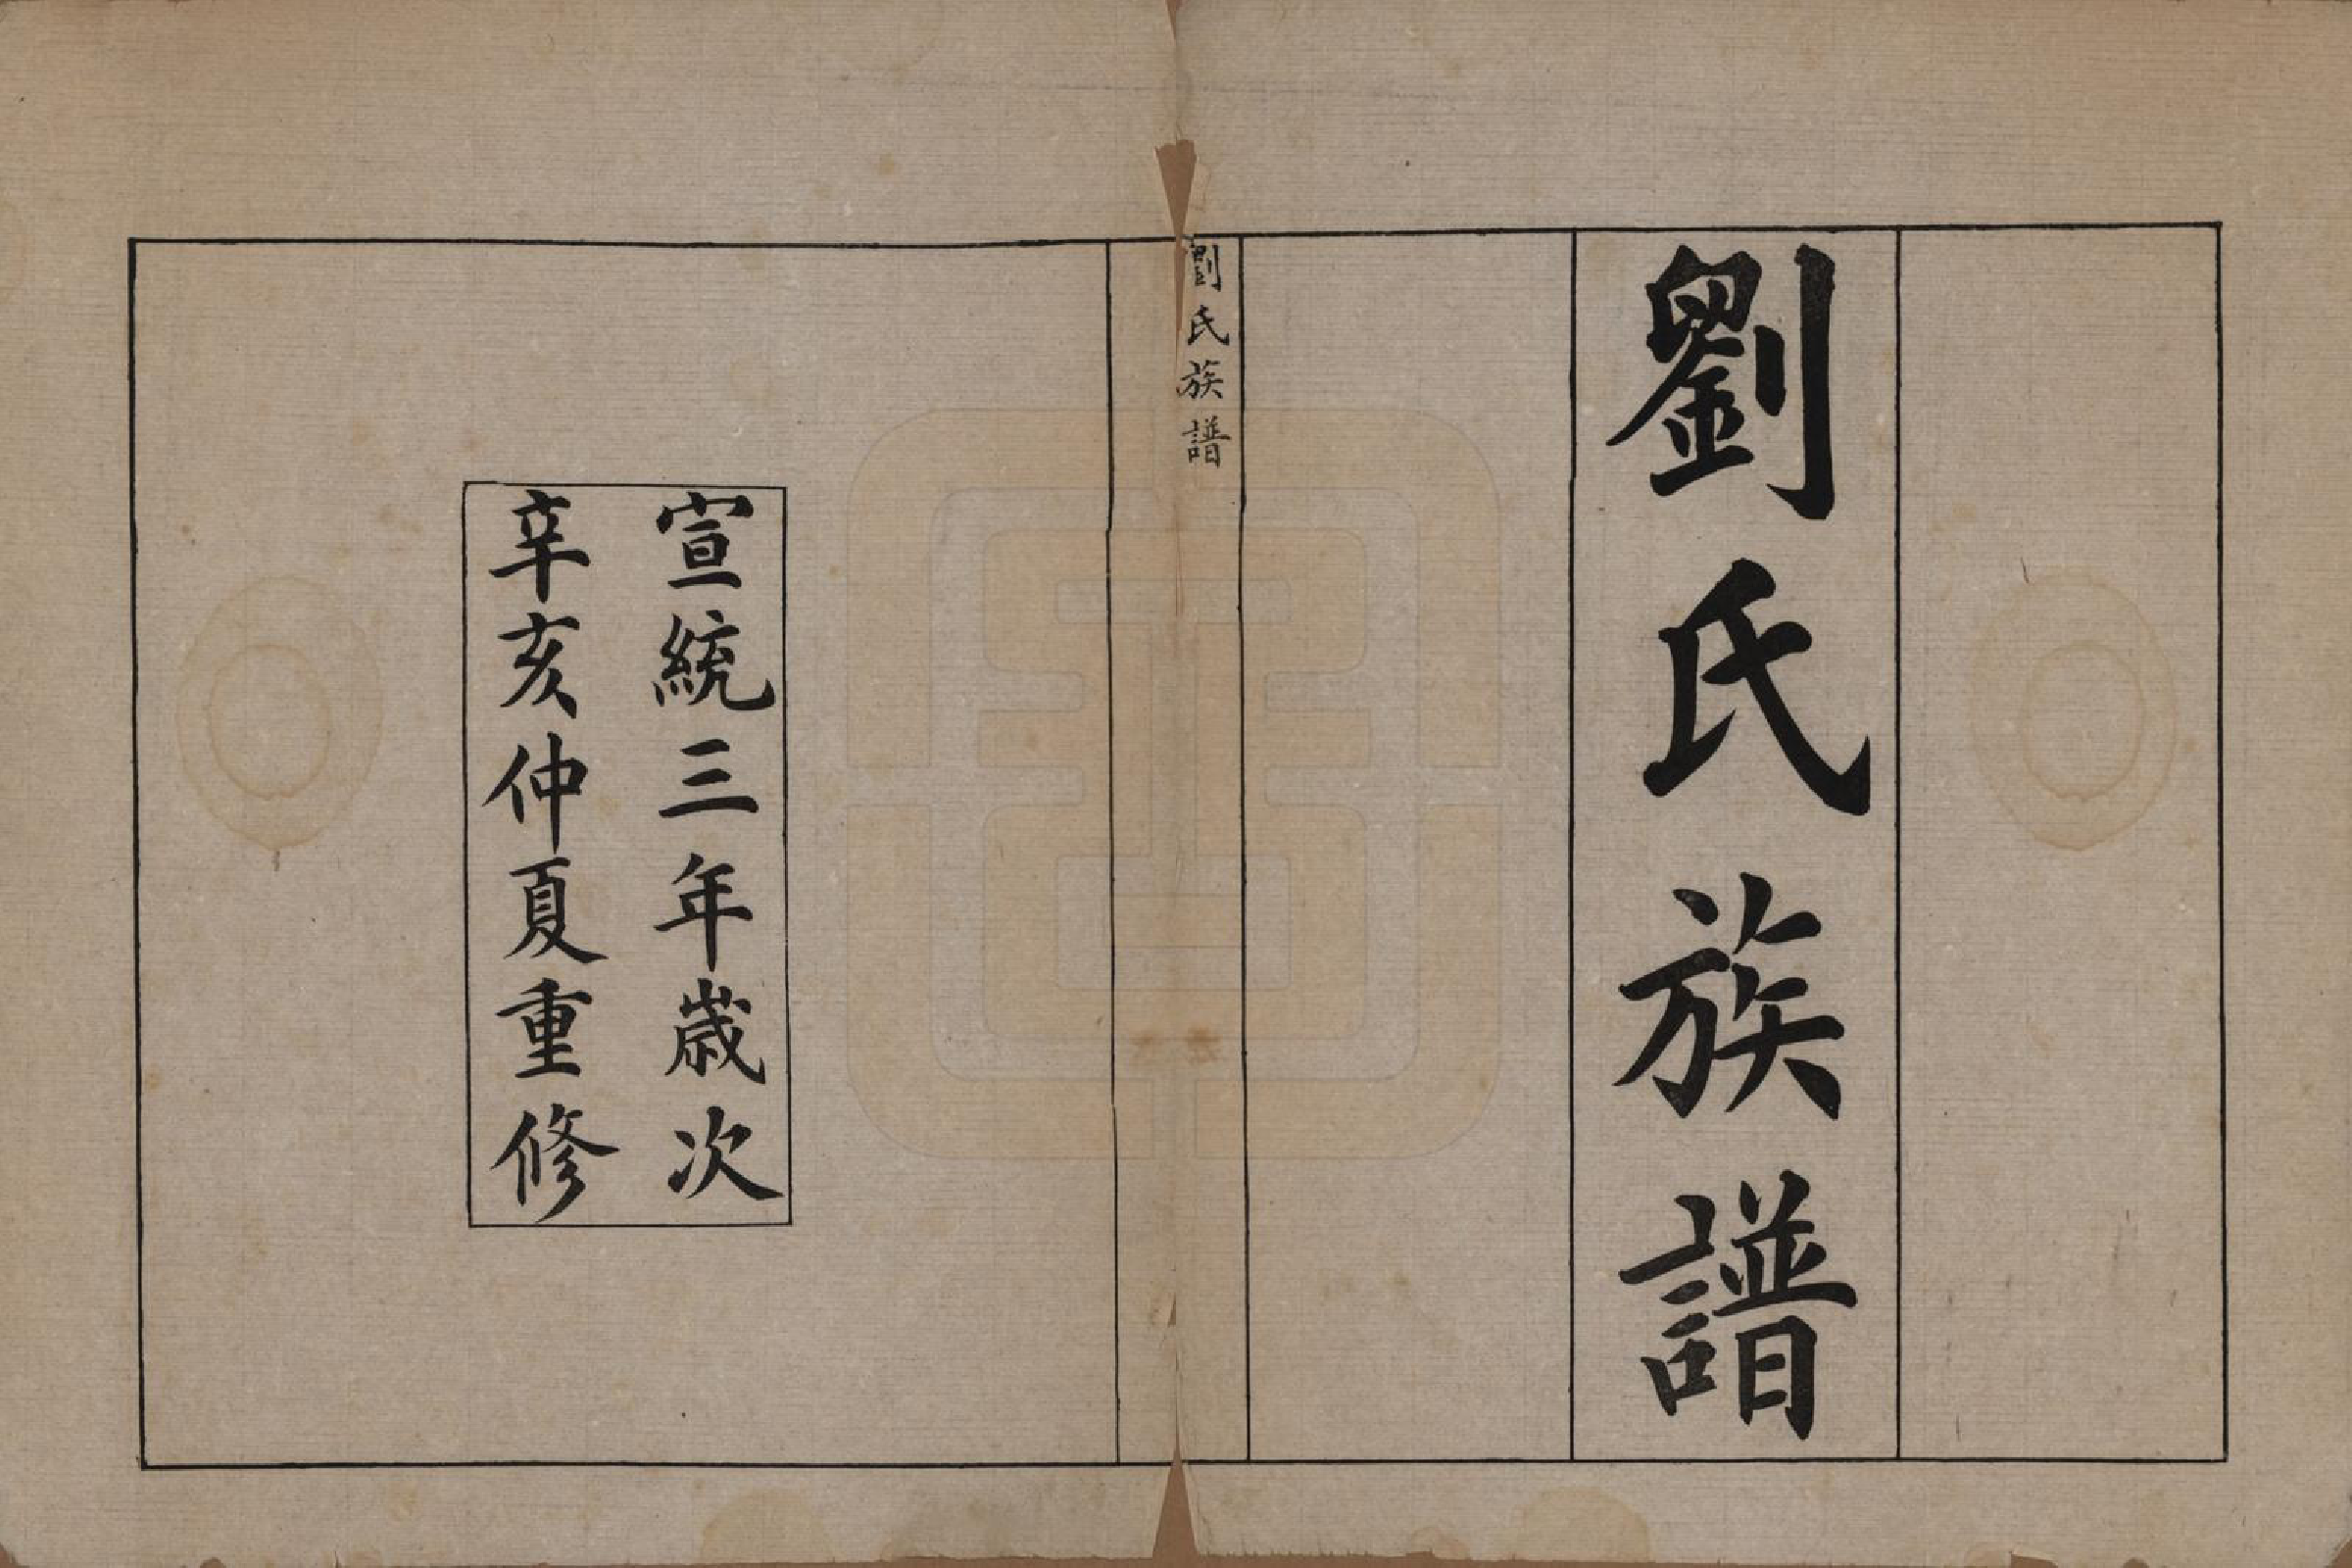 劉氏族譜
劉氏族譜
宣統三年歲次
辛亥仲夏重修